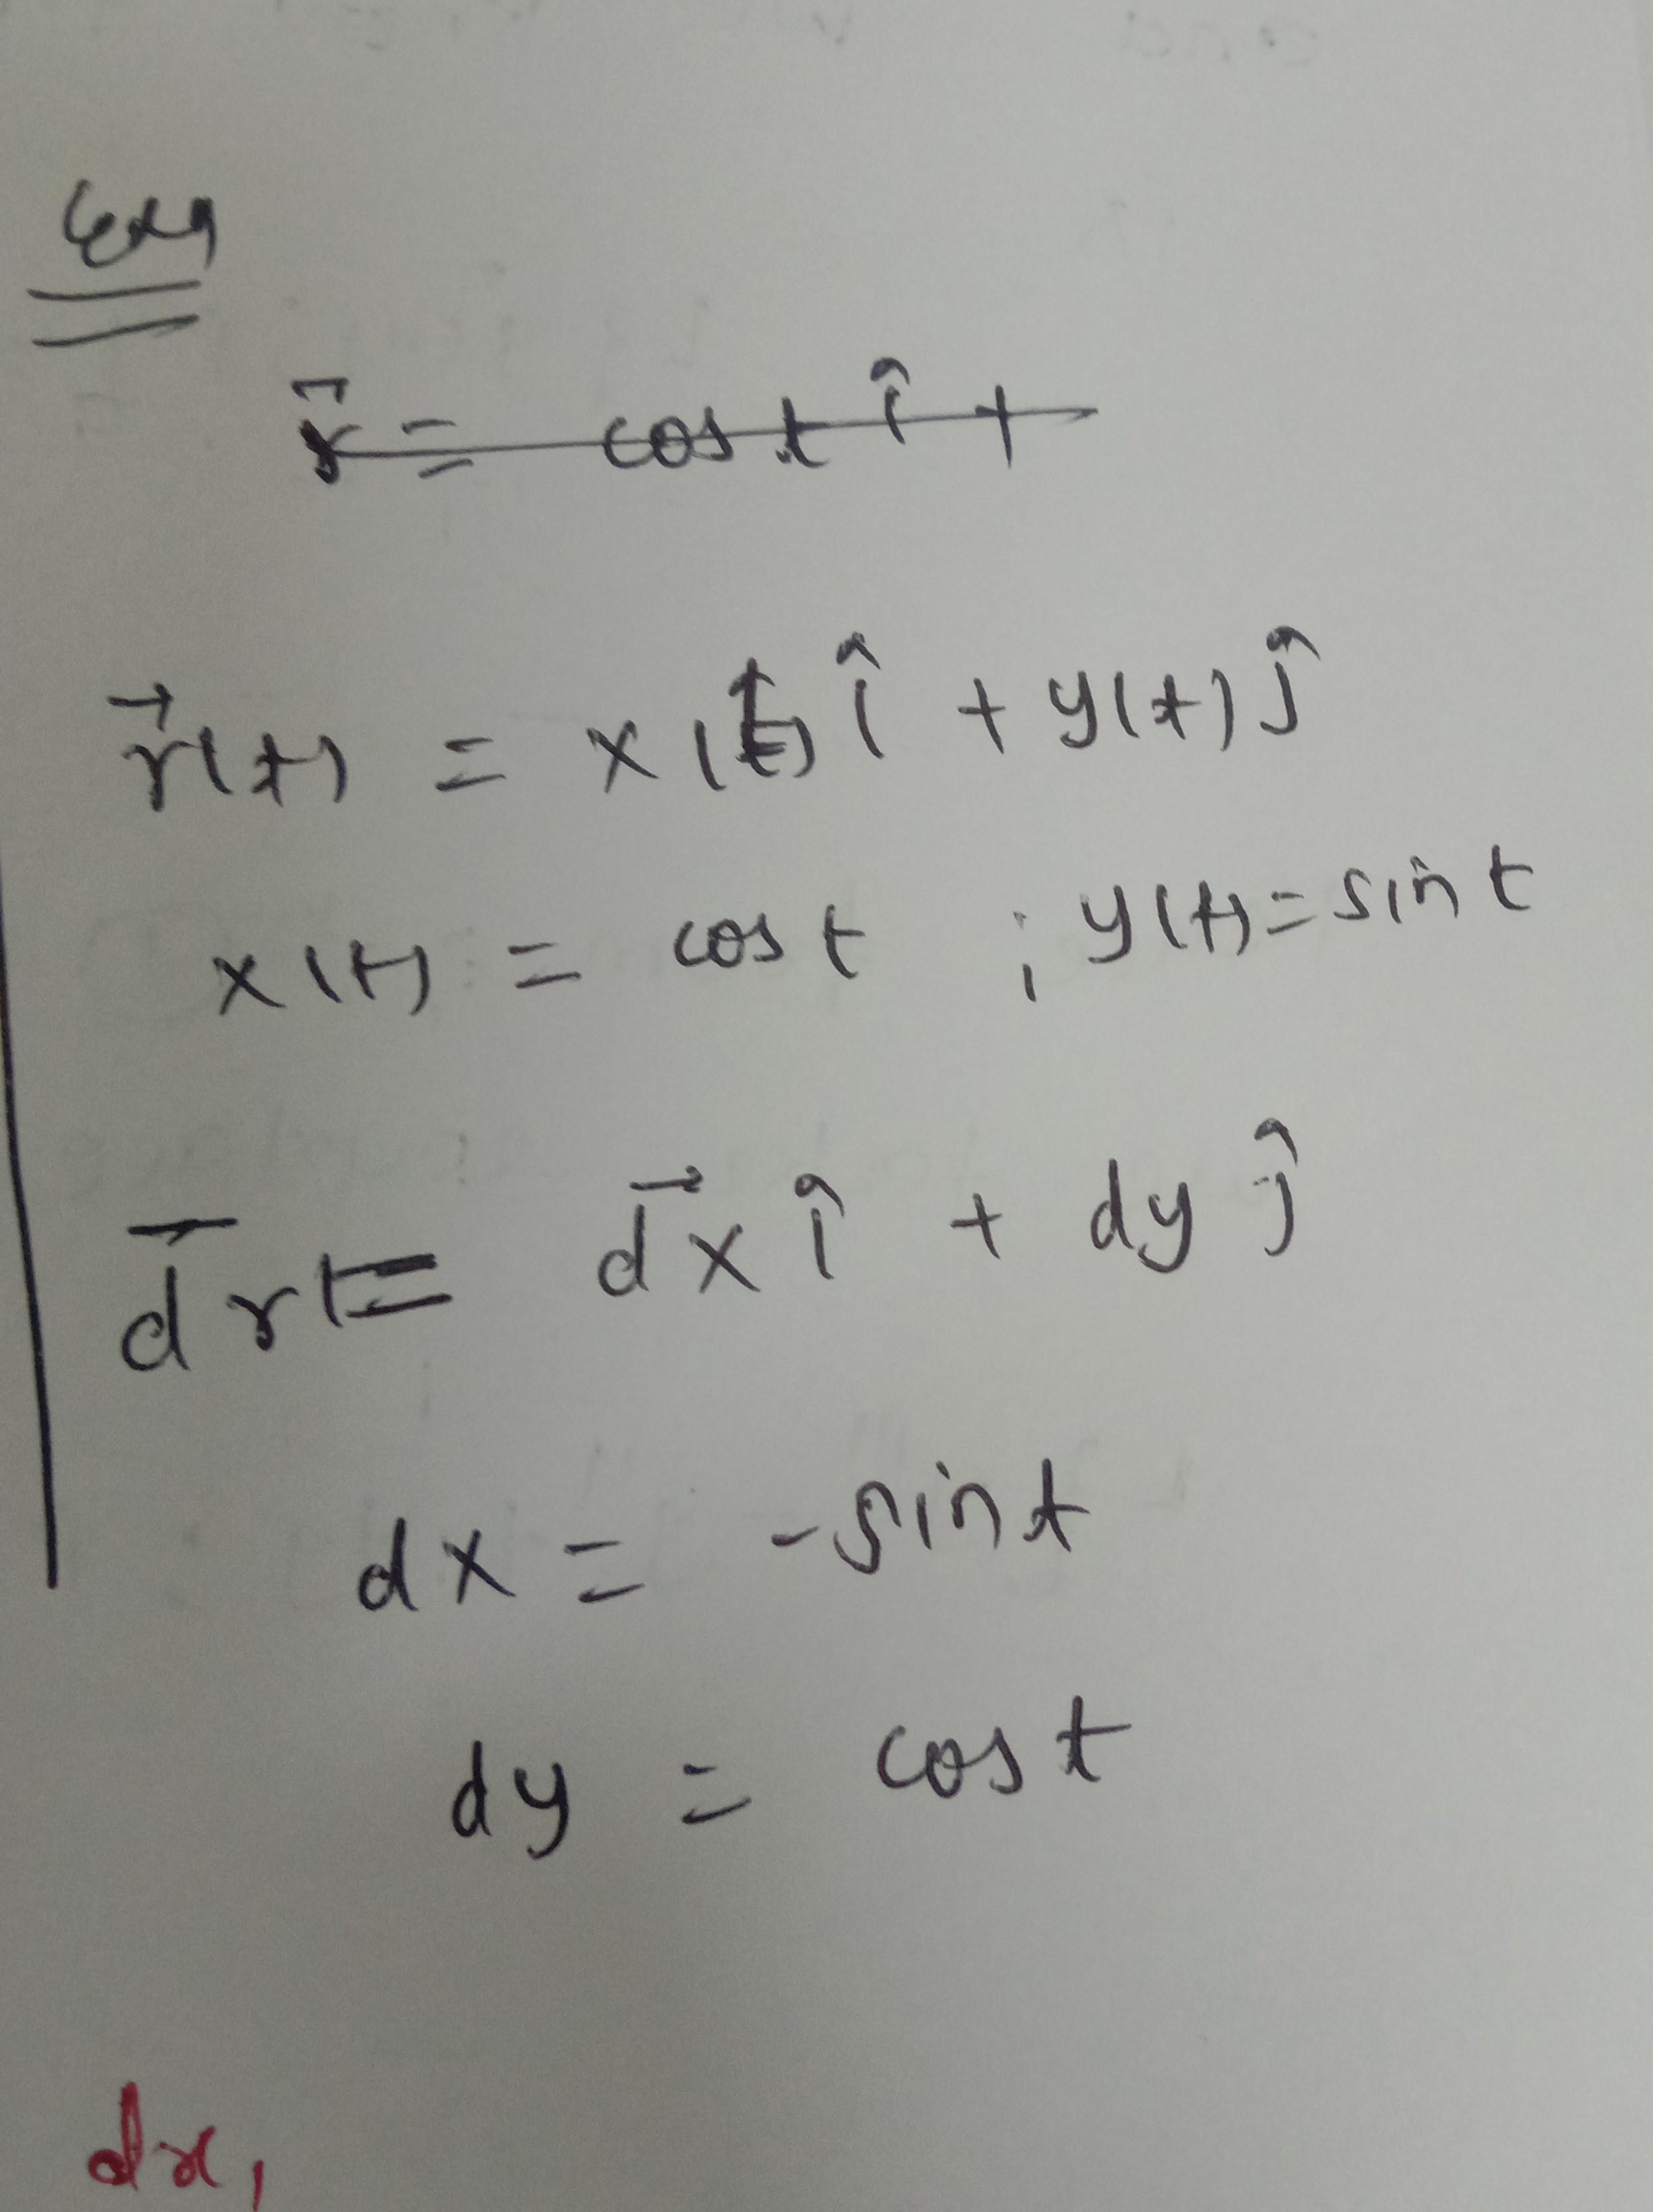 r⃗ = cos t î +
r⃗(t) = x(t) î + y(t) ĵ
x(t) = cos t ; y(t) = sin t
d⃗r = d⃗x î + dy ĵ
dx = -sin t
dy = cos t
dx,